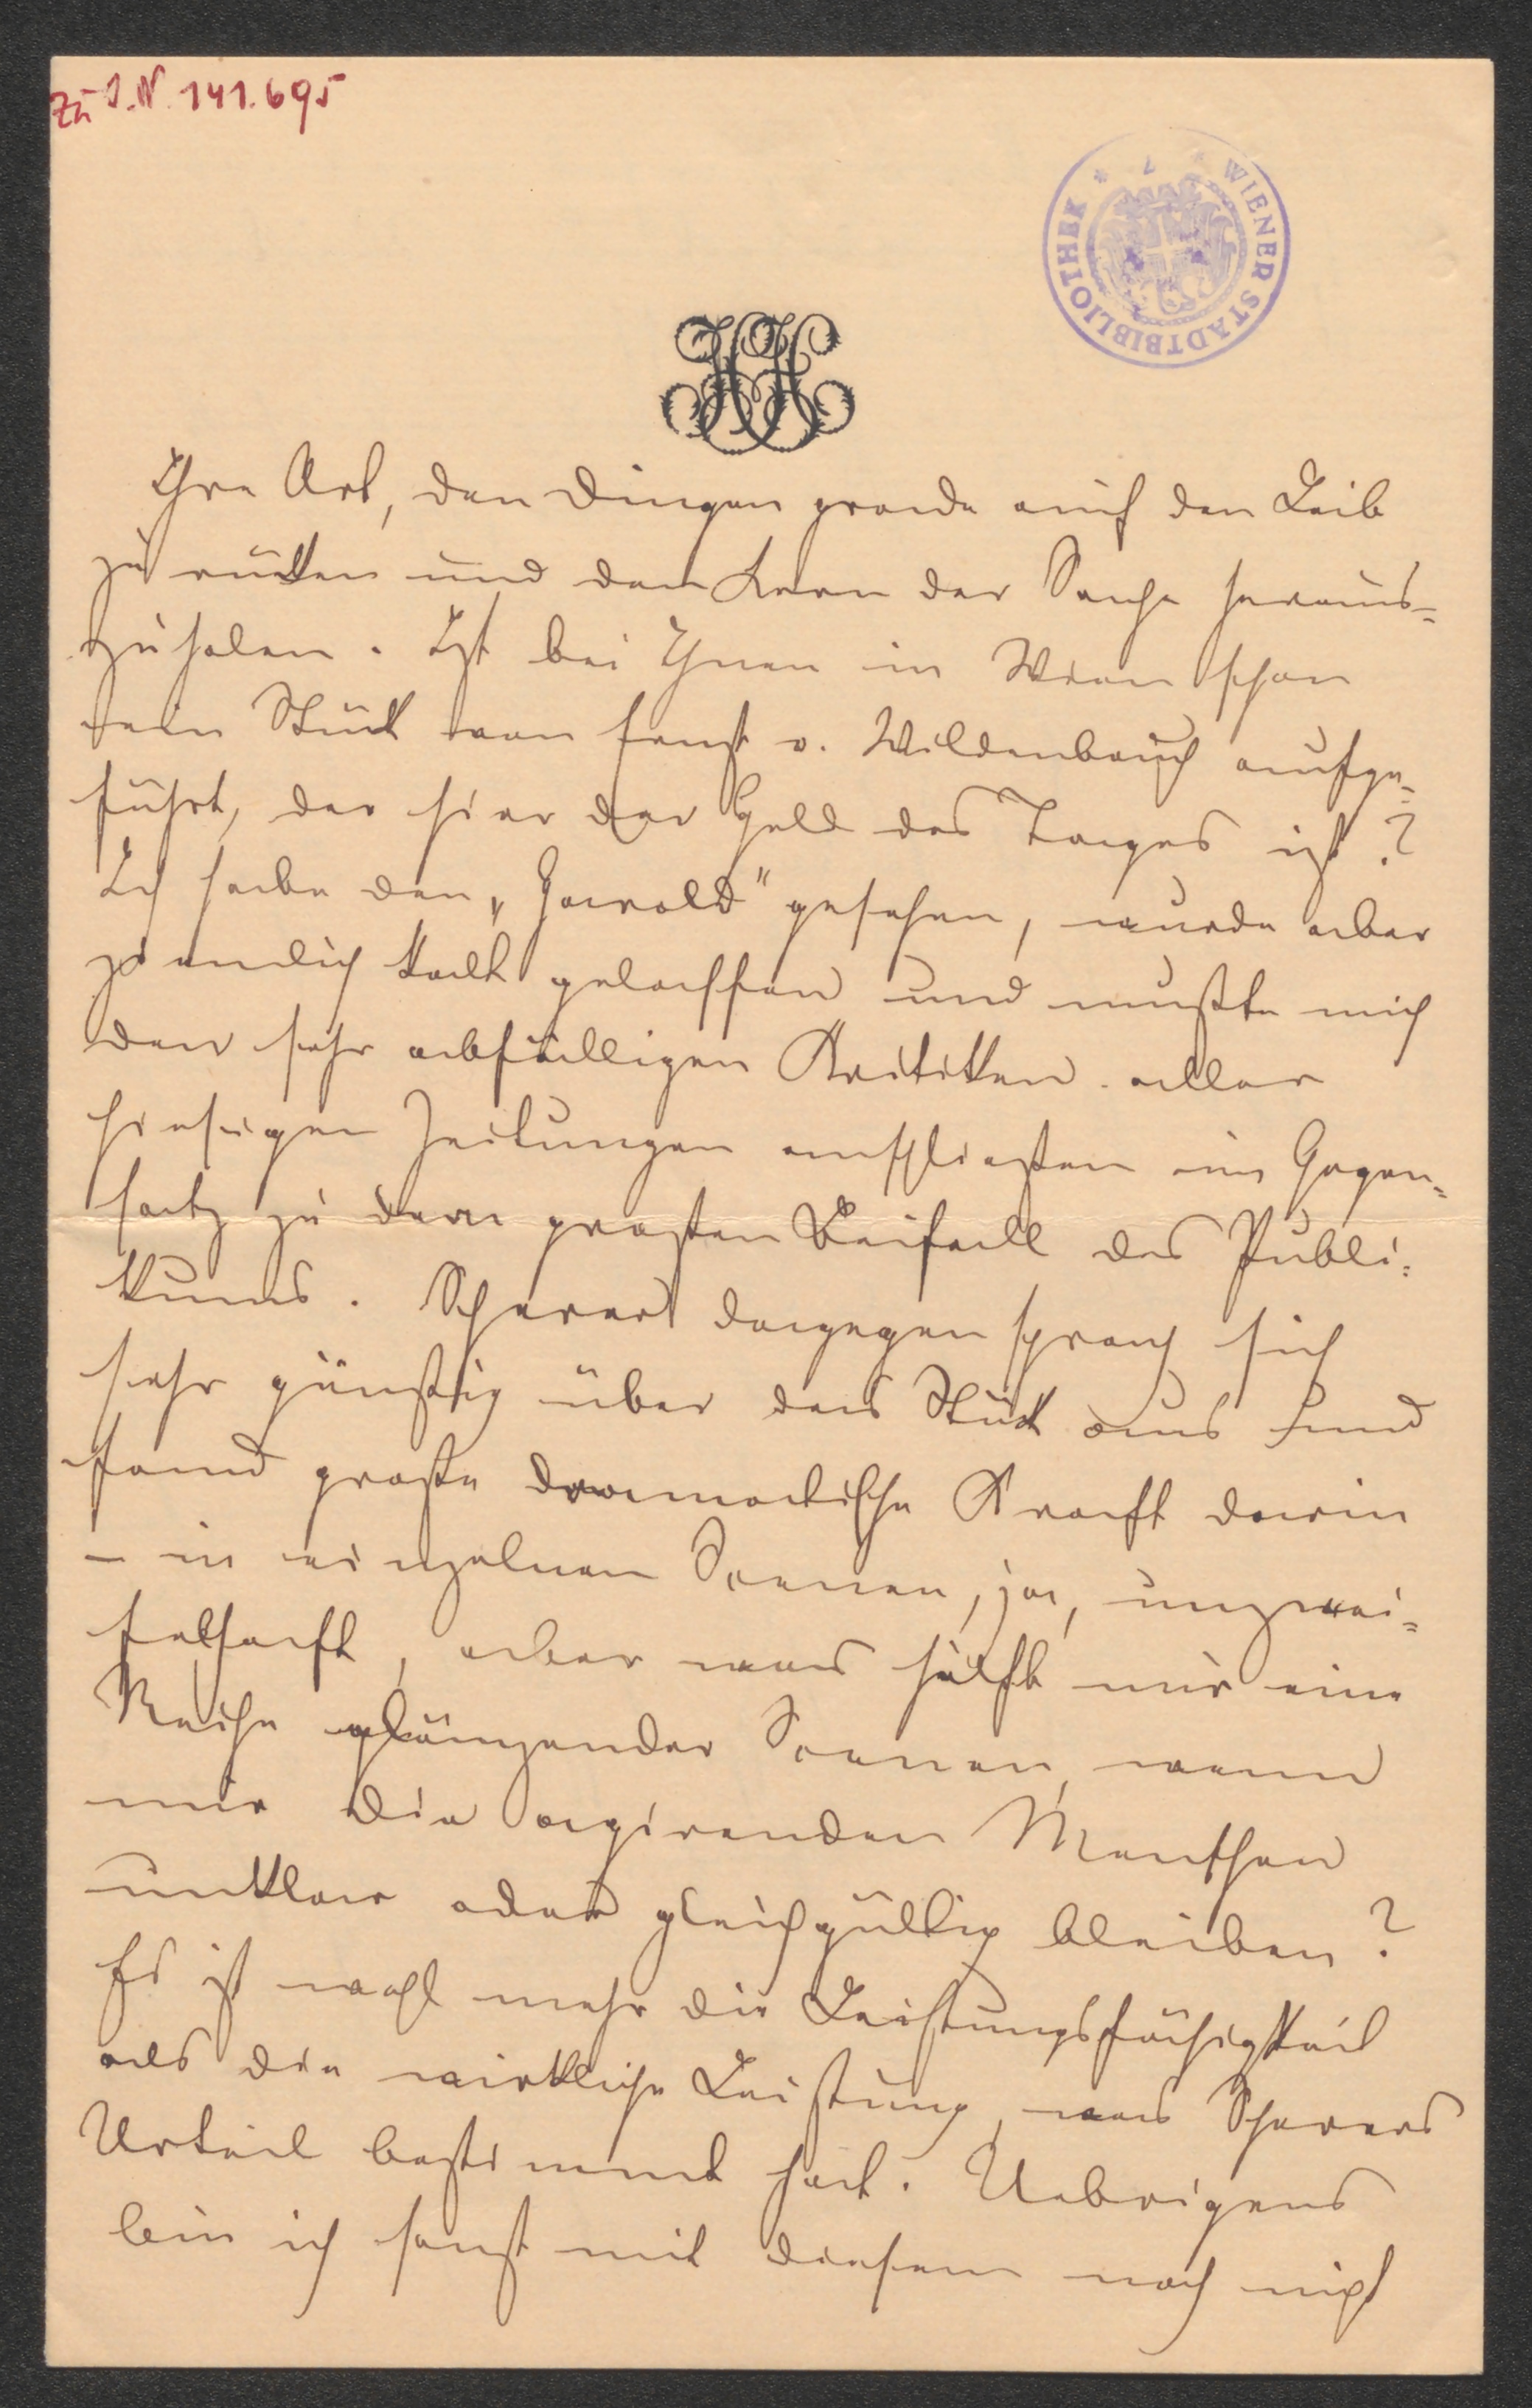 Zu I.N. 141.695
WIENER STADTBIBLIOTHEK
Ihre Art, den Dingen grade auf den Leib
zu rücken und den Kern der Sache heraus-
zuholen. Ist bei Ihnen in Wien schon
ein Stück von Ernst v. Wildenbruch aufge-
führt, der hier der Held des Tages ist?
Ich habe den „Harold" gesehen, wurde aber
ziemlich kalt gelassen und mußte mich
den sehr abfälligen Kritiken aller
hiesigen Zeitungen anschließen im Gegen-
satz zu dem großen Beifall des Publi-
kums. Scherer dagegen sprach sich
sehr günstig über das Stück aus und
fand große dramatische Kraft darin
– in einzelnen Scenen, ja, unzwei-
felhaft, aber was hilft mir eine
Reihe glänzender Scenen, wenn
mir die agirenden Menschen
unklar oder gleichgültig bleiben?
Es ist wohl mehr die Leistungsfähigkeit
als die wirkliche Leistung, was Scherers
Urteil bestimmt hat. Uebrigens
bin ich sonst mit diesem noch nicht